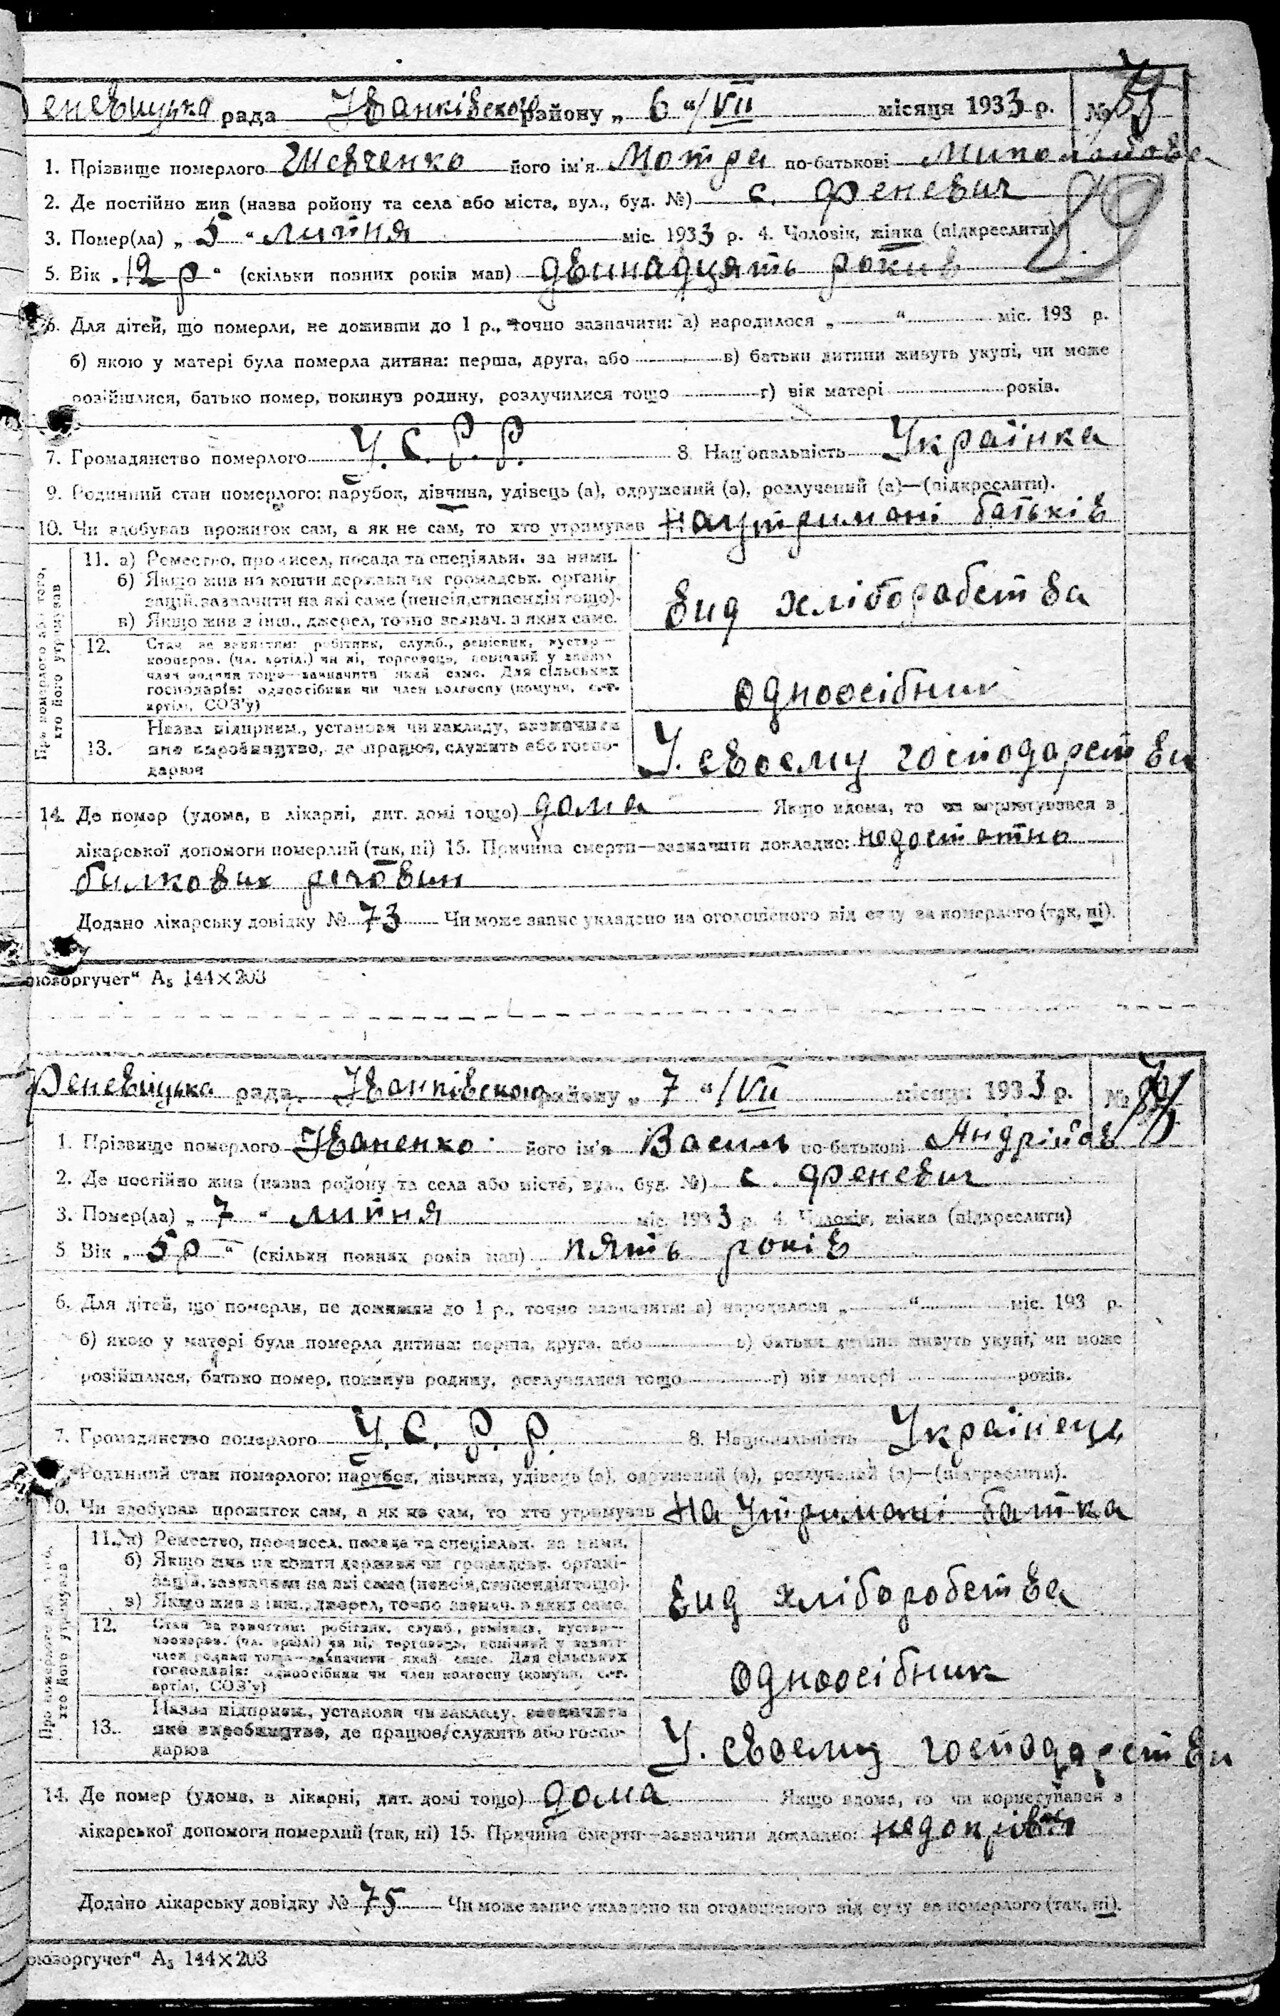 Феневицька рада Іванківского району „ 6 “/VII місяця 1933 р. №
1. Прізвище померлого Шевченко його ім'я Мотря по-батькові
2. Де постійно жив (назва ройону та села або міста, вул., буд. №) с. Феневич
3. Помер(ла) „ 5 “ липня міс. 1933 р. 4. Чоловік, жінка (підкреслити) 89
5. Вік „ 12 р “ (скільки повних років мав) двинадцять років
6. Для дітей, що померли, не доживши до 1 р., точно зазначити: а) народилося „ “ міс. 193 р.
б) якою у матері була померла дитина: перша, друга, або в) батьки дитини живуть укупі, чи може
розійшлися, батько помер, покинув родину, розлучилися тощо г) вік матері років.
7. Громадянство померлого У.С.Р.Р. 8. Національність Українка
9. Родинний стан померлого: парубок, дівчина, удівець (а), одружений (а), розлучений (а)—(підкреслити).
10. Чи здобував прожиток сам, а як не сам, то хто утримував Наутримані батьків
Про померлого або того, хто його утримував
11. а) Ремество, промисел, посада та спеціяльн. за ними.
б) Якщо жив на кошти держави чи громадськ. органі-
зацій, зазначити на які саме (пенсія, стипендія тощо).
в) Якщо жив з інш. джерел, точно зазнач. з яких саме.
вид хліборобства
12. Стан за заняттям: робітник, служб., ремісник, кустар—
кооперов. (чл. артілі) чи ні, торговець, помічний у занятт.
член родини тощо—зазначити який саме. Для сільських
господарів: одноосібник чи член колгоспу (комуни, с.-г.
артілі, СОЗ'у)
одноосібник
13. Назва підприєм., установи чи закладу, зазначити
яке виробництво, де працює, служить або госпо-
дарює
У. своему господарстви
14. Де помер (удома, в лікарні, дит. домі тощо) дома Якщо вдома, то чи користувався з
лікарської допомоги померлий (так, ні) 15. Причина смерти—зазначити докладно: недостатно
билкових речовин
Додано лікарську довідку № 73 Чи може запис укладено на оголошеного від суду за померлого (так, ні).
оюзоргучет“ А₅ 144×203
Феневицька рада Іванківского району „ 7 “/VII місяця 1933 р. №
1. Прізвище померлого Іваненко його ім'я Василь по-батькові Андрійов
2. Де постійно жив (назва ройону та села або міста, вул., буд. №) с. Феневич
3. Помер(ла) „ 7 “ липня міс. 1933 р. 4. Чоловік, жінка (підкреслити)
5 Вік „ 5 р “ (скільки повних років мав) пять років
6. Для дітей, що померли, не доживши до 1 р., точно зазначити: а) народилося „ “ міс. 193 р.
б) якою у матері була померла дитина: перша, друга, або в) батьки дитини живуть укупі, чи може
розійшлися, батько помер, покинув родину, розлучилися тощо г) вік матері років.
7. Громадянство померлого У.С.Р.Р. 8. Національність Українець
Родинний стан померлого: парубок, дівчина, удівець (а), одружений (а), розлучений (а)—(підкреслити).
10. Чи здобував прожиток сам, а як не сам, то хто утримував На утримані батка
Про померлого або того, хто його утримував
11. а) Ремество, промисел, посада та спеціяльн. за ними.
б) Якщо жив на кошти держави чи громадськ. органі-
зацій, зазначити на які саме (пенсія, стипендія тощо).
в) Якщо жив з інш. джерел, точно зазнач. з яких саме.
вид хліборобства
12. Стан за заняттям: робітник, служб., ремісник, кустар—
кооперов. (чл. артілі) чи ні, торговець, помічний у занятт.
член родини тощо—зазначити який саме. Для сільських
господарів: одноосібник чи член колгоспу (комуни, с.-г.
артілі, СОЗ'у)
одноосібник
13. Назва підприєм., установи чи закладу, зазначити
яке виробництво, де працює/служить або госпо-
дарює
У. своему господарстви
14. Де помер (удома, в лікарні, дит. домі тощо) дома Якщо вдома, то чи користувався з
лікарської допомоги померлий (так, ні) 15. Причина смерти—зазначити докладно: недокрівя
Додано лікарську довідку № 75 Чи може запис укладено на оголошеного від суду за померлого (так, ні).
оюзоргучет“ А₅ 144×203